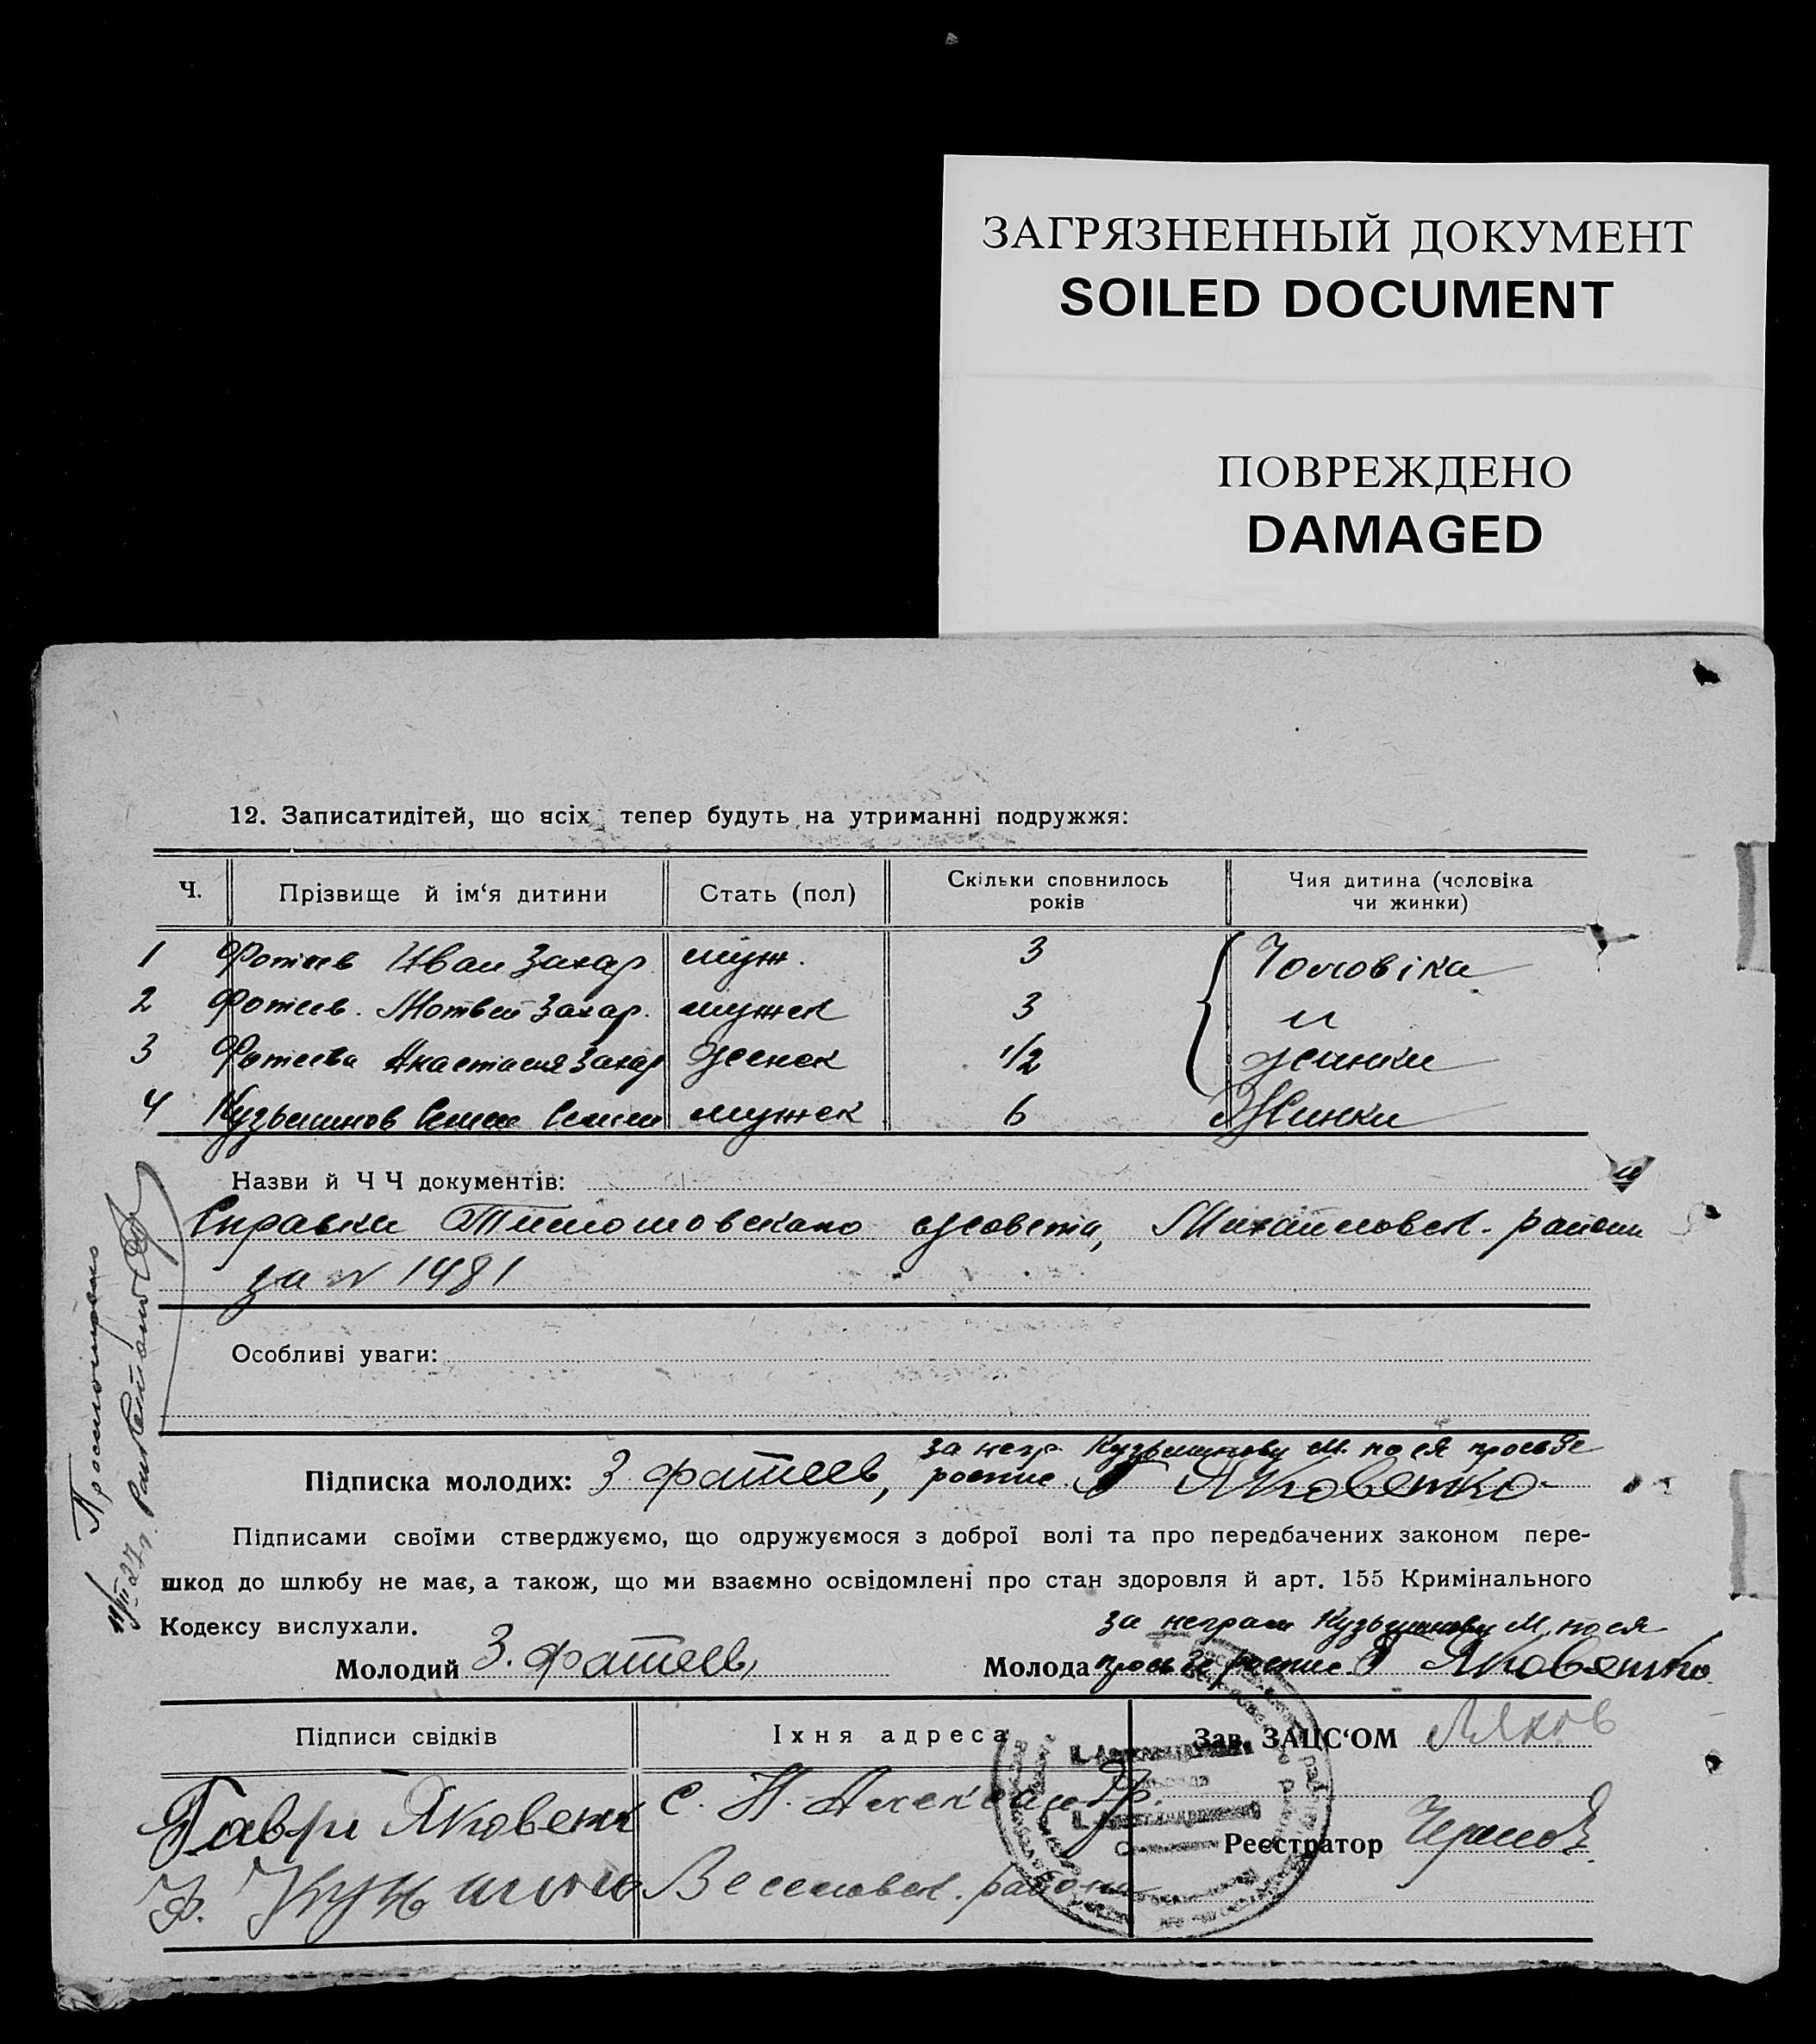 ЗАГРЯЗНЕННЫЙ ДОКУМЕНТ
SOILED DOCUMENT
ПОВРЕЖДЕНО
DAMAGED
12. Записатидітей, що всіх тепер будуть на утриманні подружжя:
Ч. Прізвище й ім‘я дитини Стать (пол) Скільки сповнилось років Чия дитина (чоловіка чи жинки)
1 Фотеев Иван Захар муж. 3 Чоловіка
2 Фотеев. Мотвей Захар. мужск 3 и
3 Фотеева Анастасия Захар женск 1/2 жинки
4 Кузьминов Семен мужск 6 Жинки
Назви й Ч Ч документів:
Справки Тимошовского с/совета, Михайловск. району
за № 1481
Особливі уваги:
за негр. Кузьминову М. по ея просьбе
Підписка молодих: З фатеев, роспис Яковенко
Підписами своїми стверджуємо, що одружуємося з доброї волі та про передбачених законом пере-
шкод до шлюбу не має, а також, що ми взаємно освідомлені про стан здоровля й арт. 155 Кримінального
Кодексу вислухали.
за неграм Кузьминову М. по ея
Молодий З. фатеев, Молода просьбе роспис Яковенко
Підписи свідків Їхня адреса Зав. ЗАЦС‘ОМ
Гаври Яковенк с. Н. Александр.
Реєстратор
Ф. Веселовск. району
Просмотрено
11/III 27 г.